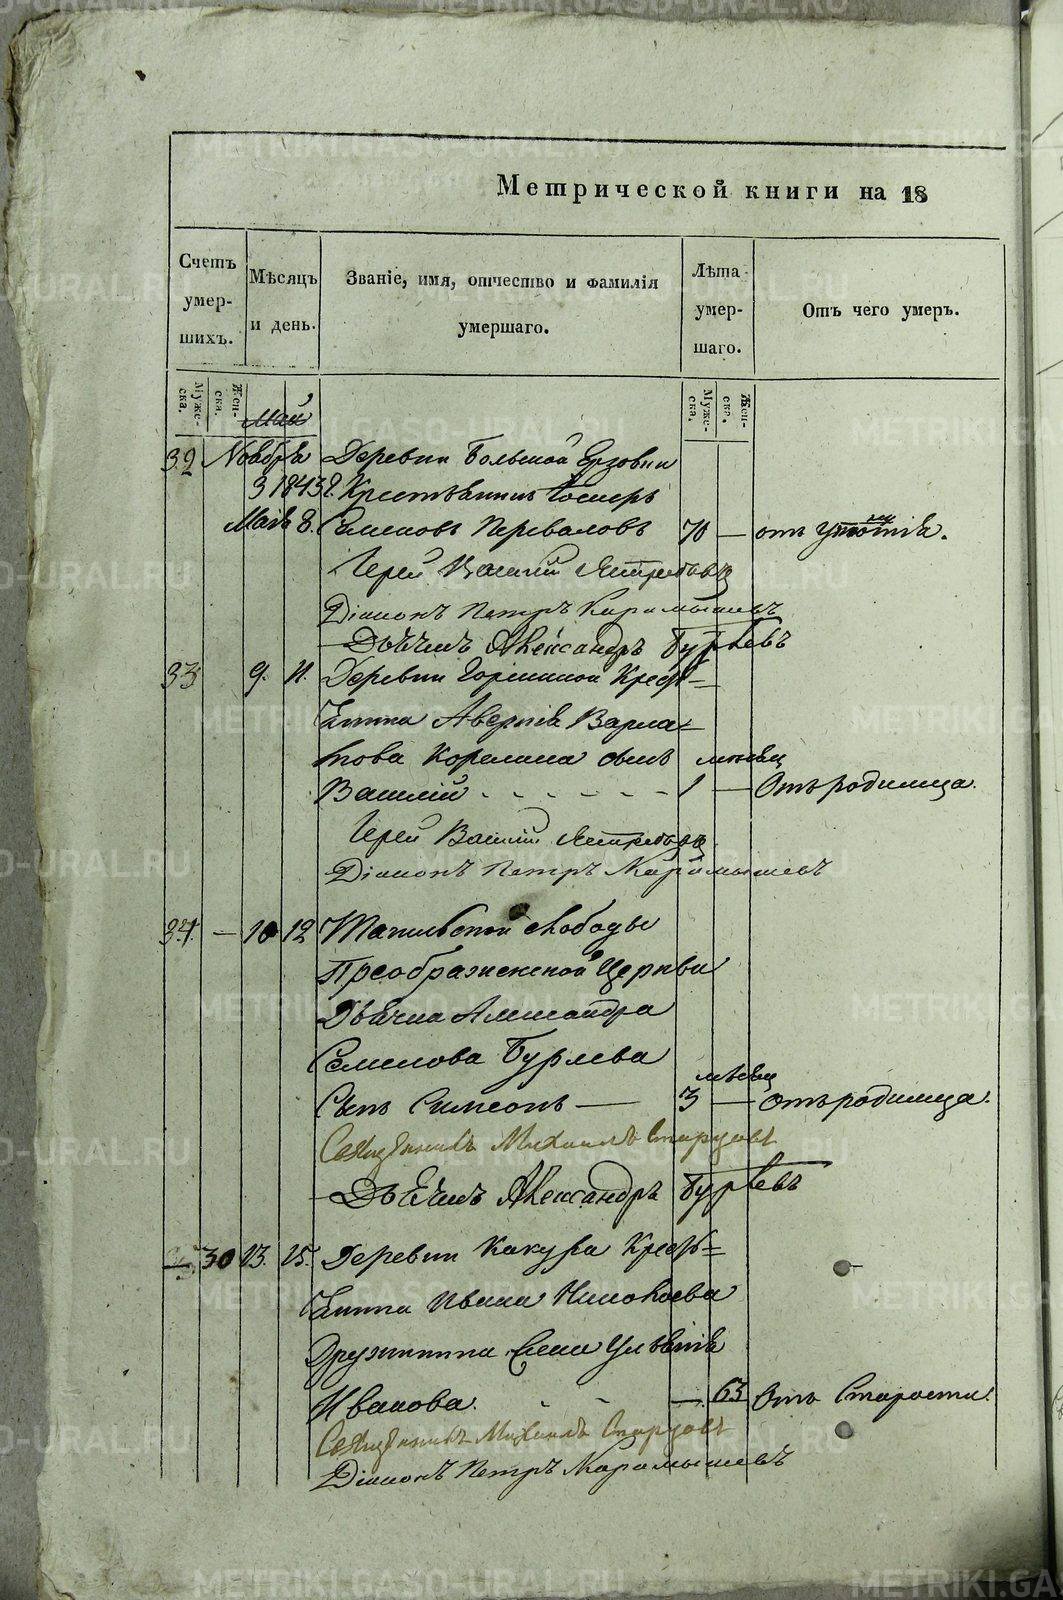 Метрической книги на 18
Счетъ умер-шихъ.
Мѣсяцъ и день.
Званіе, имя, отчество и фамилія умершаго.
Лѣта умер-шаго.
Отъ чего умеръ.
Муже-ска.
Жен-ска.
Муже-ска.
Жен-ска.
Май
32 Ноября Деревни Большой Ерзовки
3 1843 г. Крестьянинъ
Маія 8. Семеновъ Переваловъ 70 — отъ
Іерей Василій Ястребовъ
Діаконъ Петръ Карамышевъ
Дьячекъ Александръ Бурлевъ
33 9. 11. Деревни Горскиной Крес=
тьянина Аверкія Варла=
това Корелина сынъ мѣсяц
Василій - - - - - - 1 — Отъ родимца.
Іерей Василій Ястребовъ
Діаконъ Петръ Карамышевъ
34. — 10 12 Тагильской слободы
Преображенской Церкви
Дьячка Александра
Семенова Бурлева мѣсяц
Сынъ Симеонъ — 3 — отъ родимца.
Священникъ Михаилъ Старцовъ
Дьячекъ Александръ Бурлевъ
30 13. 15. Деревни Какуя Крес=
тьянина Ивана Николаева
Дружинина Жена Ульянія
Иванова. - - — 63 Отъ Старости.
Священникъ Михаилъ Старцовъ
Діаконъ Петръ Карамышевъ
METRIKI.GASO-URAL.RU